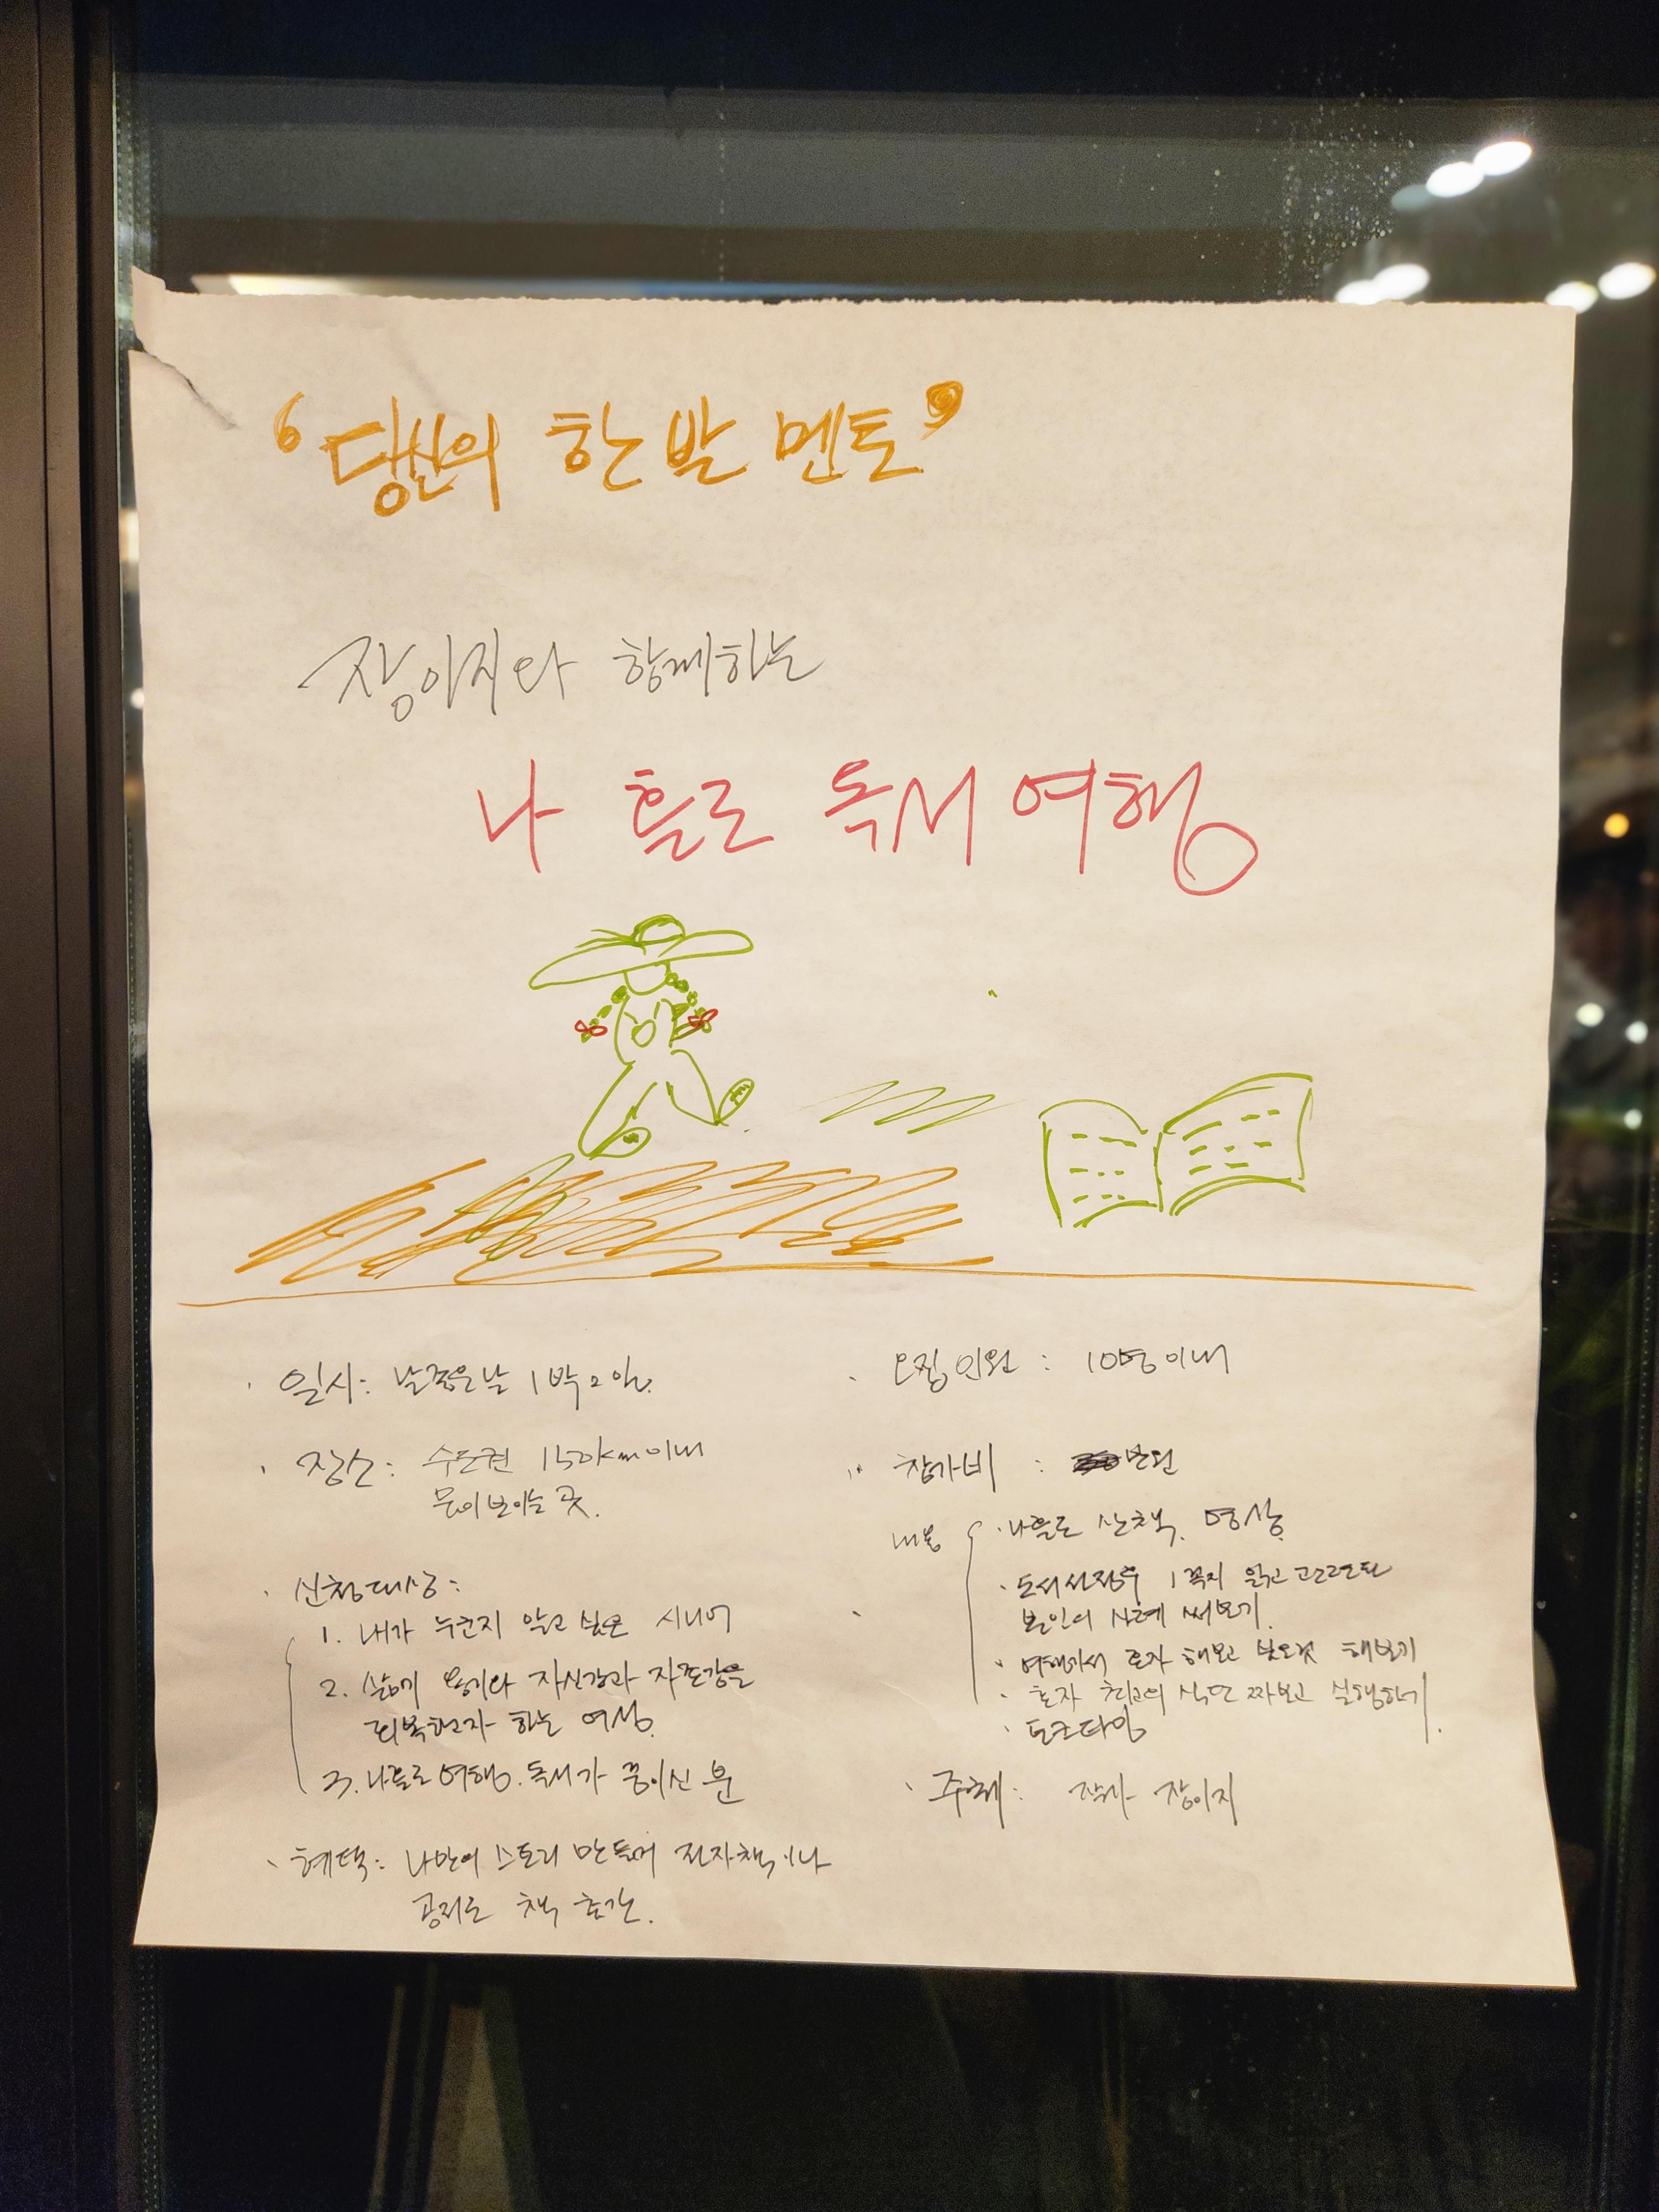 "당신의 한 발 멘토"
장이지와 함께하는
나 홀로 독서 여행
· 일시: 날 좋은 날 1박 2일.
· 장소: 수도권 150km 이내
물이 보이는 곳.
· 신청대상:
1. 내가 누군지 알고 싶은 시니어
2. 삶의 용기와 자신감과 자존감을
회복하고자 하는 여성.
3. 나홀로 여행. 독서가 꿈이신 분
· 혜택: 나만의 스토리 만들어 전자책이나
공저로 책 출간.
· 모집인원 : 10명 이내
· 참가비 : 본인
내용
· 나홀로 산책, 명상.
· 도서 선정후 1꼭지 읽고 관련된
본인의 사례 써보기.
· 여행가서 혼자 해보고 싶은것 해보기
· 혼자 최고의 식단 짜보고 실행하기
· 토크타임
· 주최: 작가 장이지